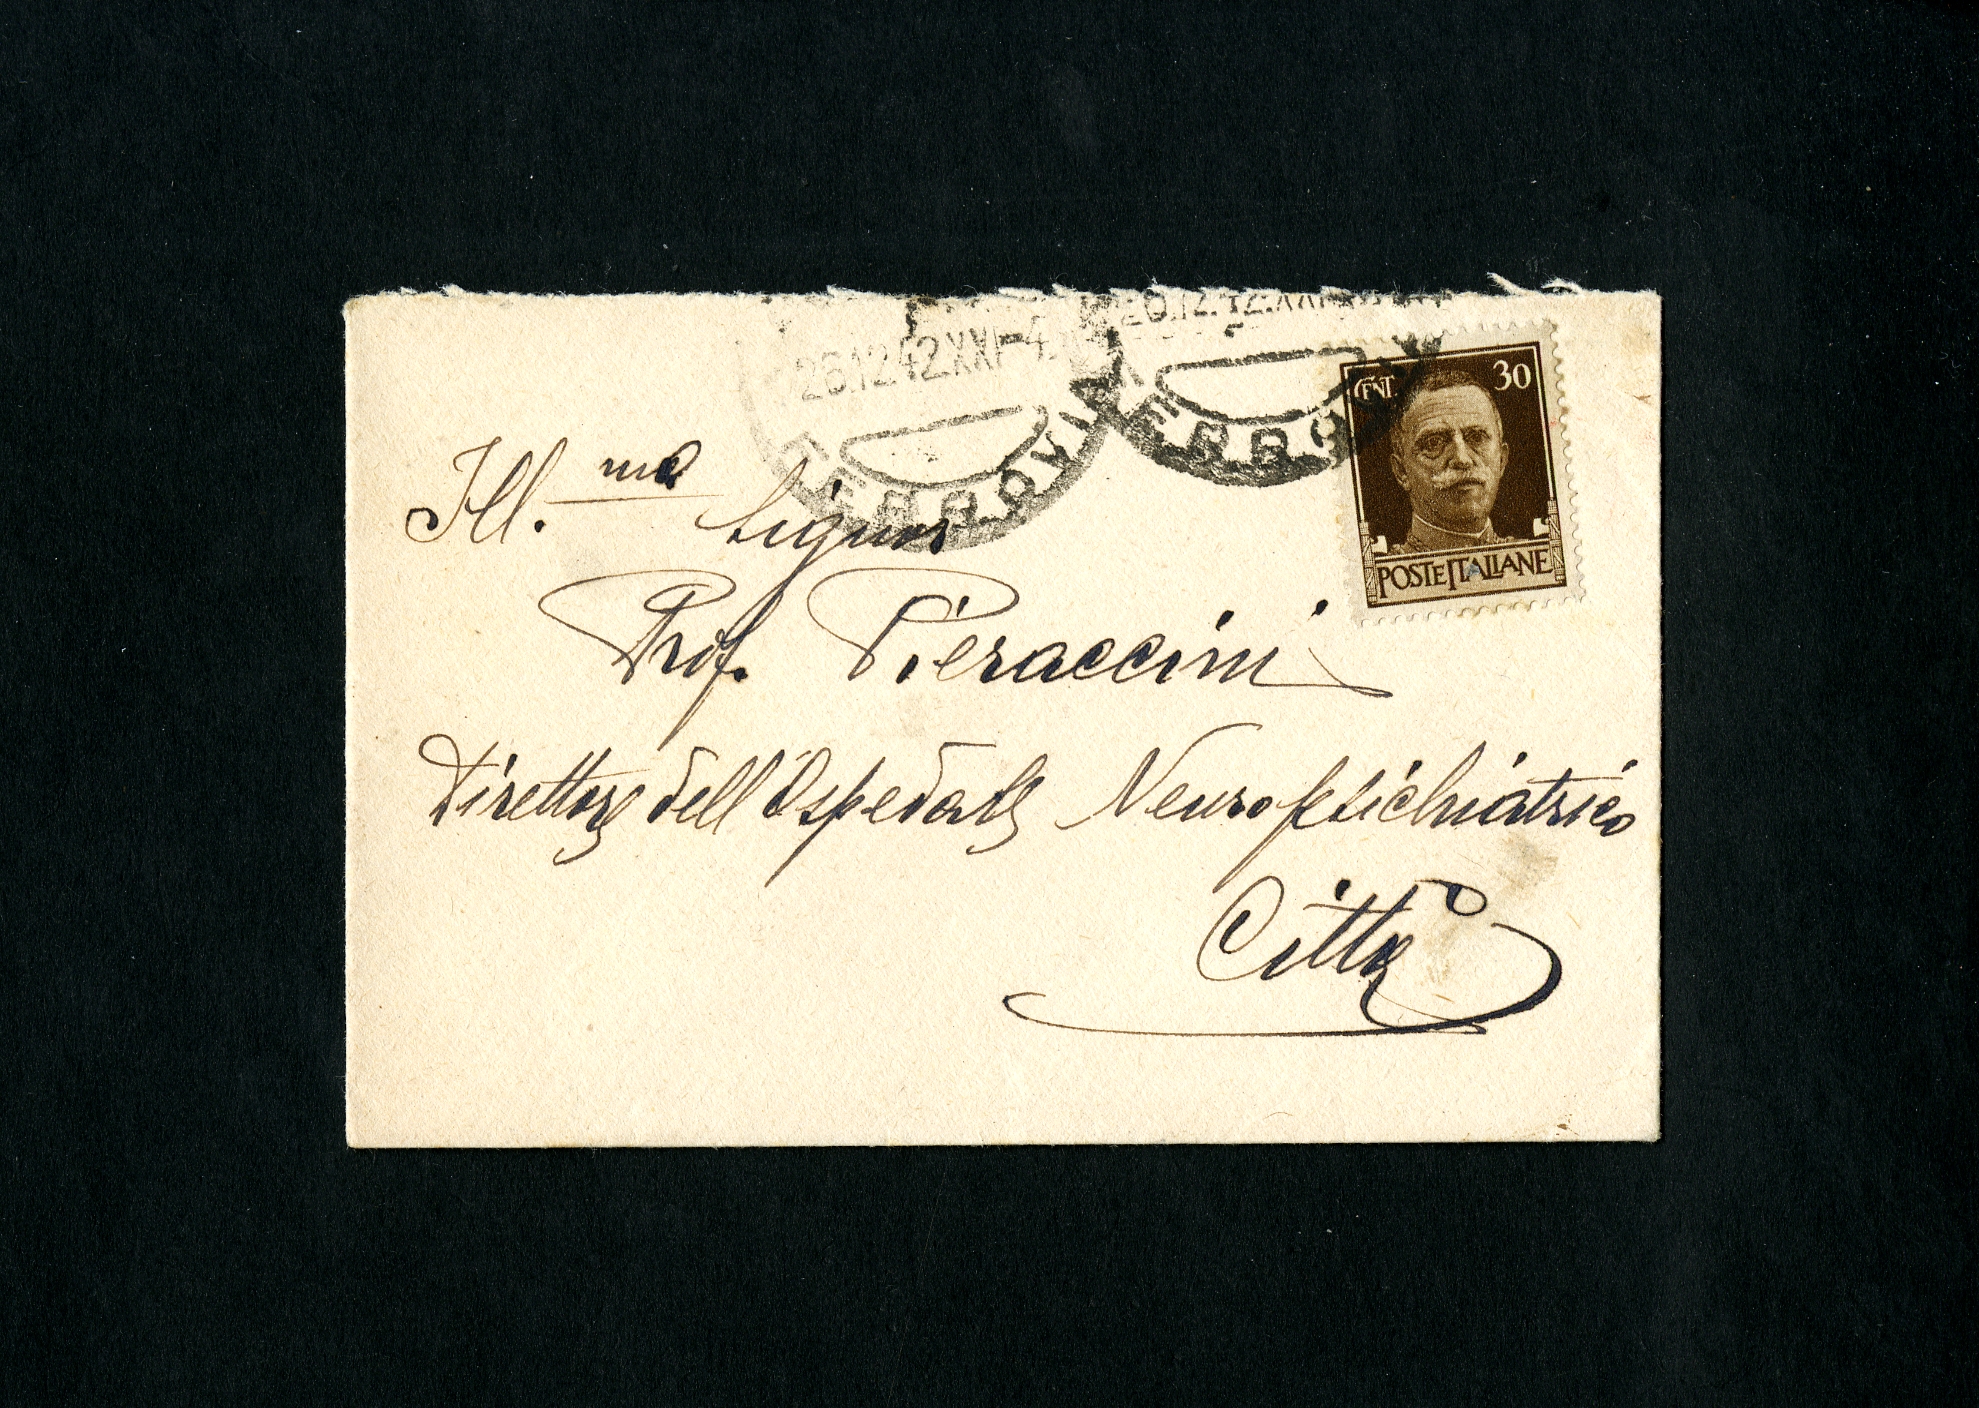 26.12.42.XXI-4
26.12.42.XXI
FERROVIA
FERROVIA
CENT 30
POSTE ITALIANE
Ill.mo Signor
Prof. Pieraccini
Direttore dell'Ospedale Neuropsichiatrico
Città